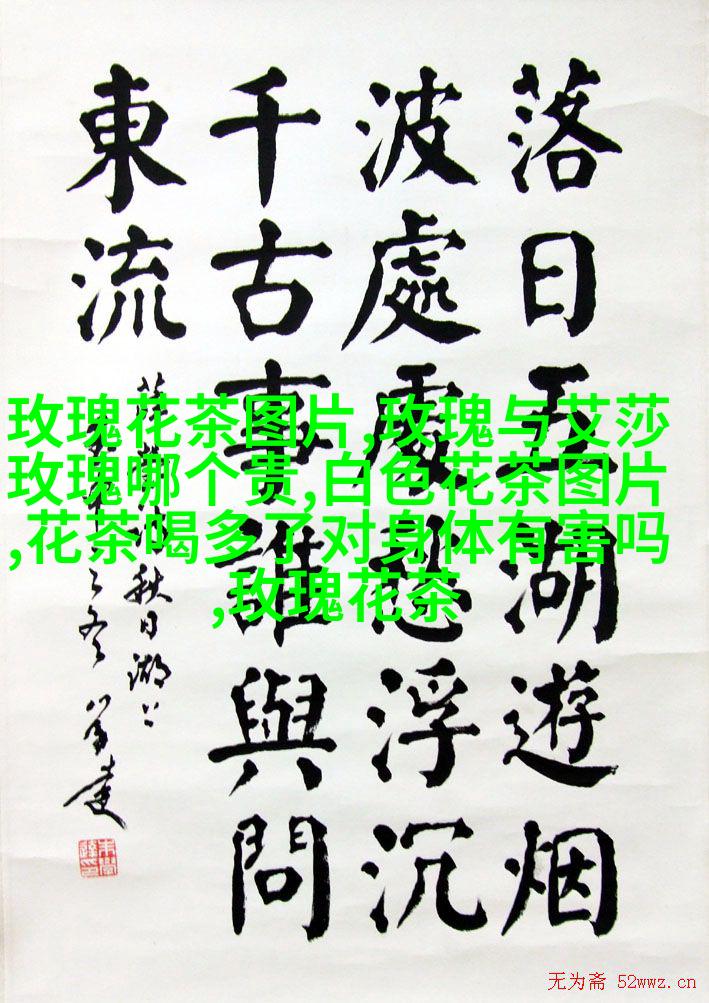 落日五湖遊烟
波處處愁浮沉
千古事誰與問
東流
秋日湖上
玫瑰花茶图片,玫瑰与艾莎
玫瑰哪个贵,白色花茶图片
,花茶喝多了对身体有害吗
,玫瑰花茶
无为斋 52wwz.cn